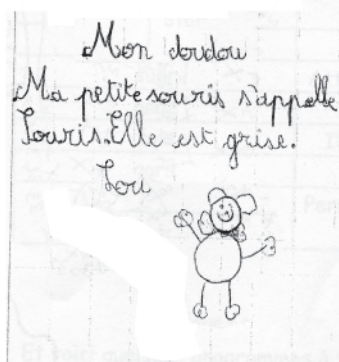 Mon doudou
Ma petite souris s'appelle
Souris. Elle est grise.
Lou